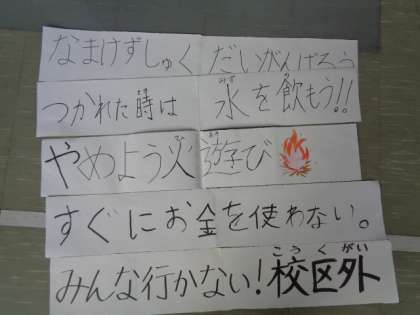 なまけずしゅくだいがんばろう
つかれた時は 水を飲もう!!
やめよう火遊び
すぐにお金を使わない。
みんな行かない!校区外